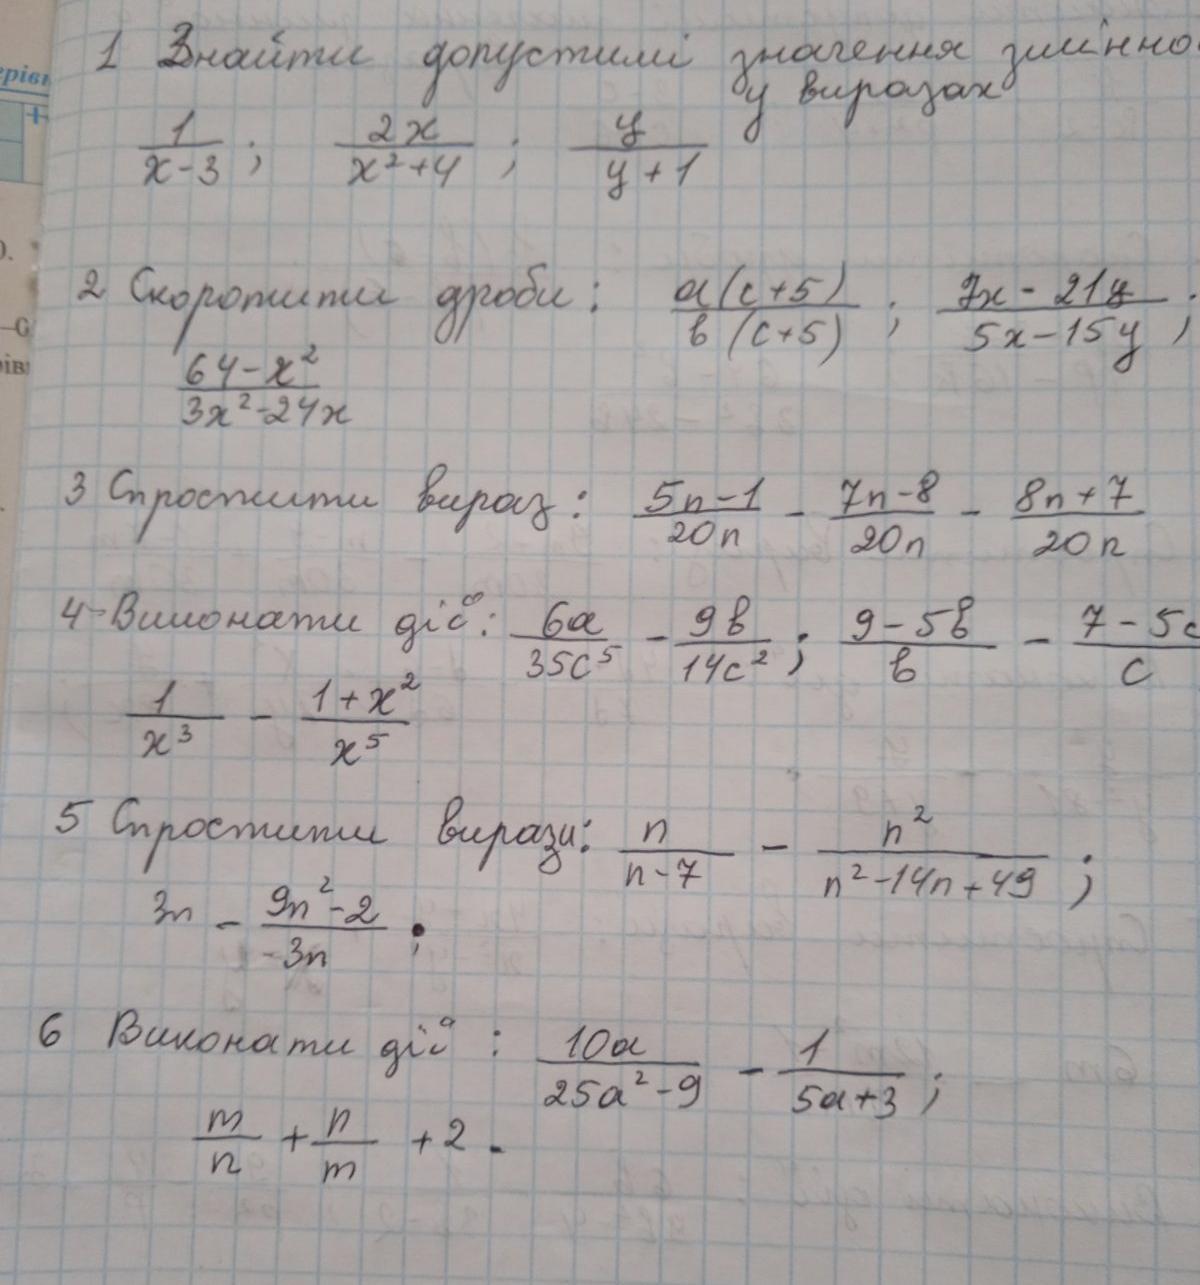 1 Знайти допустимі значення змінно
у виразах
1/(x-3); 2x/(x²+4); y/(y+1)
2 Скоротити дроби: a(c+5)/b(c+5); (7x-21y)/(5x-15y);
(64-x²)/(3x²-24x)
3 Спростити вираз: (5n-1)/20n - (7n-8)/20n - (8n+7)/20n
4 Виконати дії: 6a/35c⁵ - 9b/14c²; (9-5b)/b - (7-5c)/c
1/x³ - (1+x²)/x⁵
5 Спростити вирази: n/(n-7) - n²/(n²-14n+49);
3n - (9n²-2)/-3n;
6 Виконати дії: 10a/(25a²-9) - 1/(5a+3);
m/n + n/m + 2.